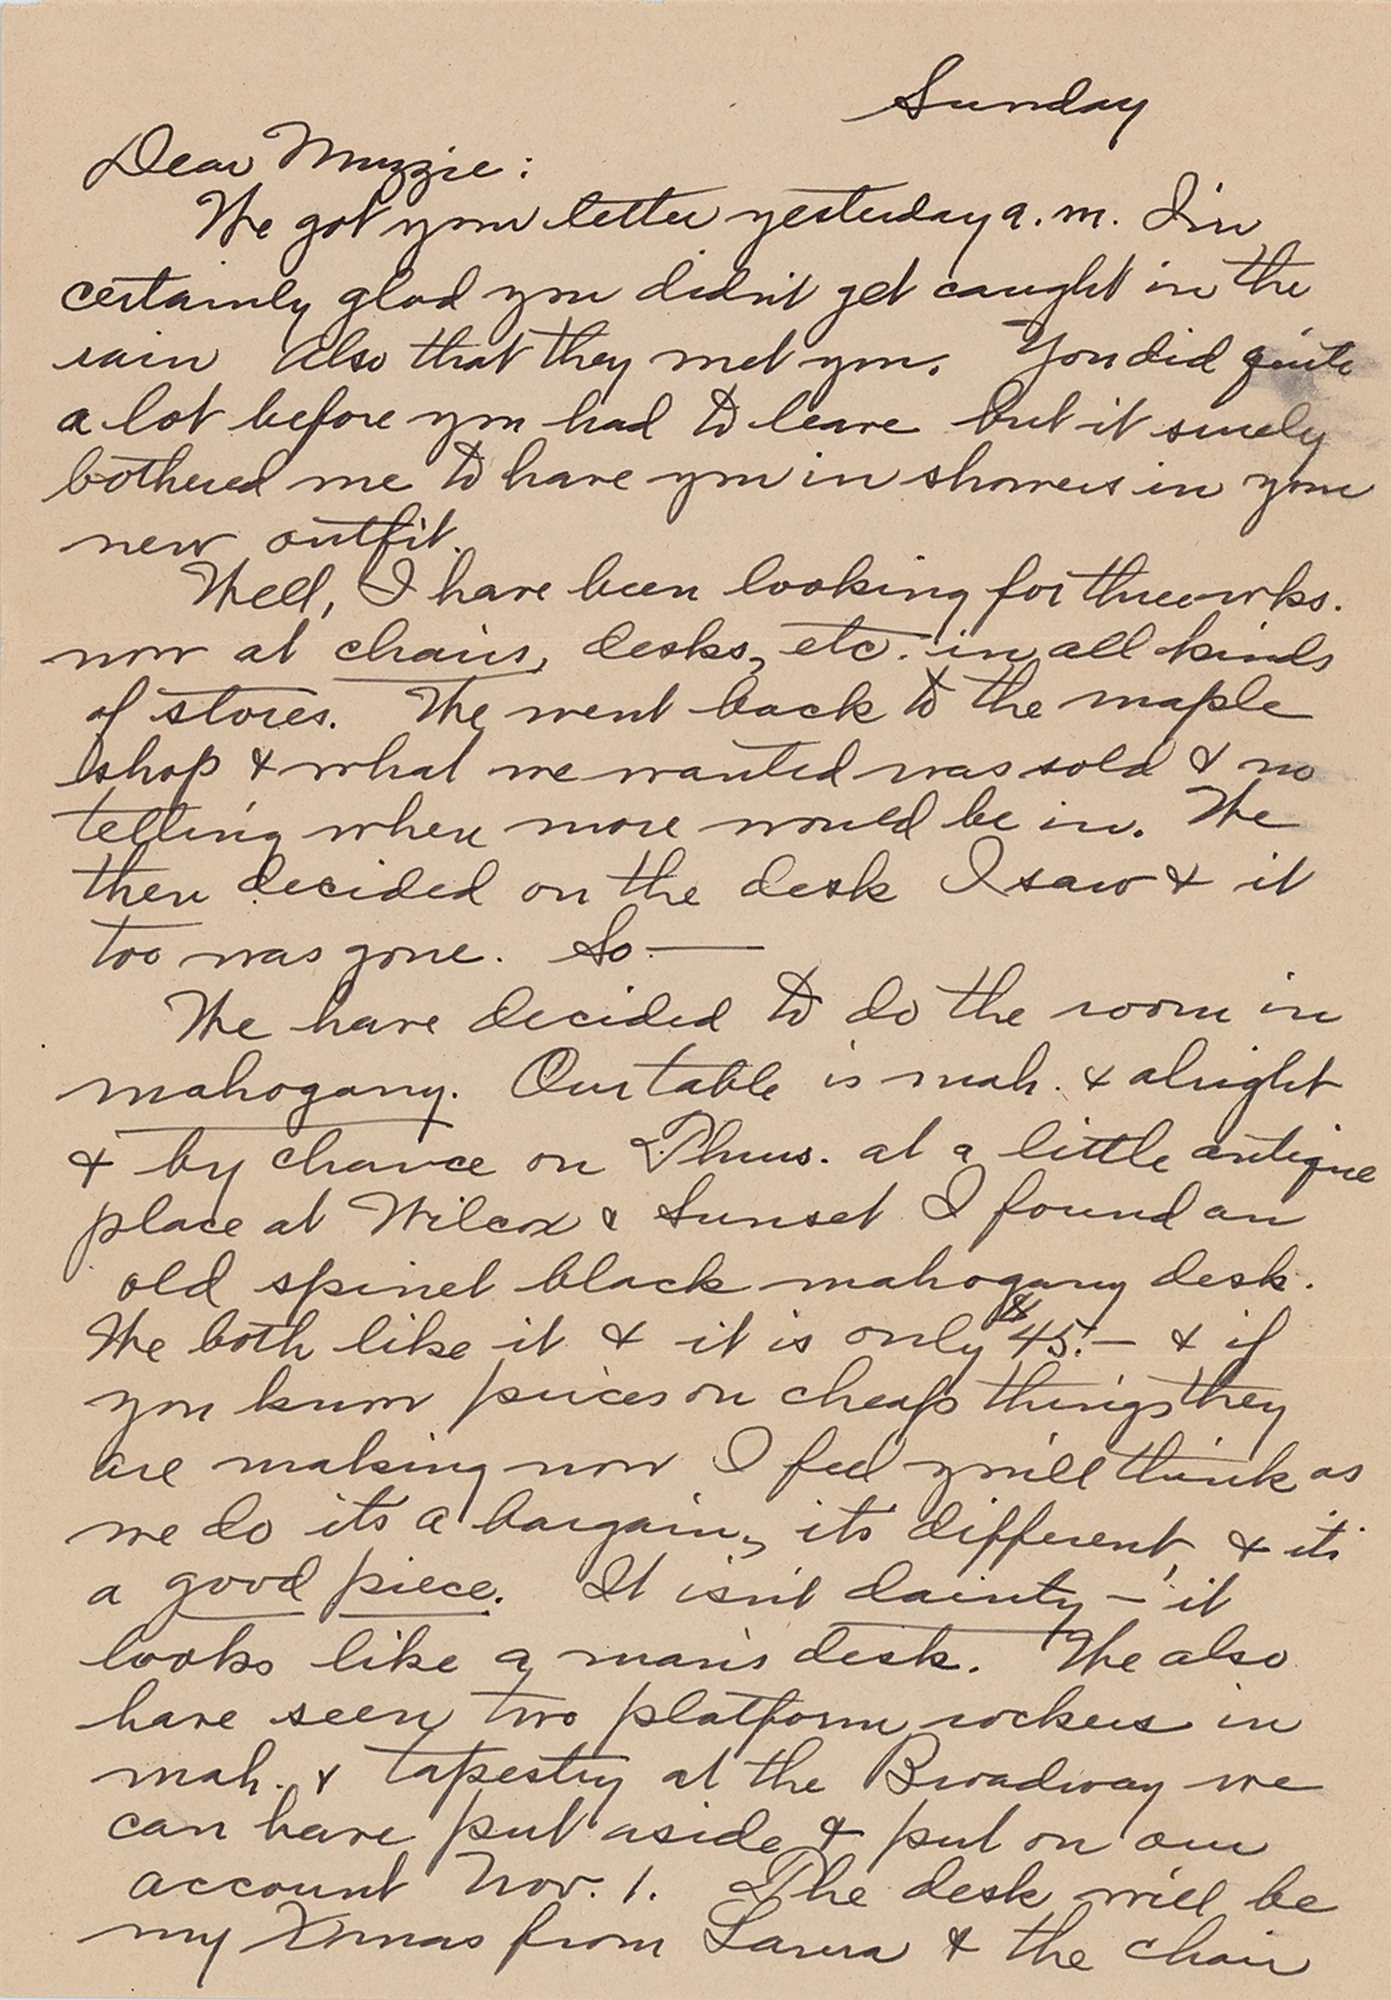 Sunday
Dear Muzzie:
We got your letter yesterday a.m. I'm
certainly glad you didn't get caught in the
rain Also that they met you. You did quite
a lot before you had to leave but it surely
bothered me to have you in showers in your
new outfit.
Well, I have been looking for three wks.
now at chairs, desks, etc. in all kinds
of stores. We went back to the maple
shop & what we wanted was sold & no
telling when more would be in. We
then decided on the desk I saw & it
too was gone. So —
We have decided to do the room in
mahogany. Our table is mah. & alright
& by chance on Thurs. at a little antique
place at Wilcox & Sunset I found an
old spinet black mahogany desk.
We both like it & it is only $45.— & if
you know prices on cheap things they
are making now I feel you'll think as
we do it's a bargain, it's different, & it's
a good piece. It isn't dainty — it
looks like a man's desk. We also
have seen two platform rockers in
mah. & tapestry at the Broadway we
can have put aside & put on our
account Nov. 1. The desk will be
my Xmas from Laura & the chair